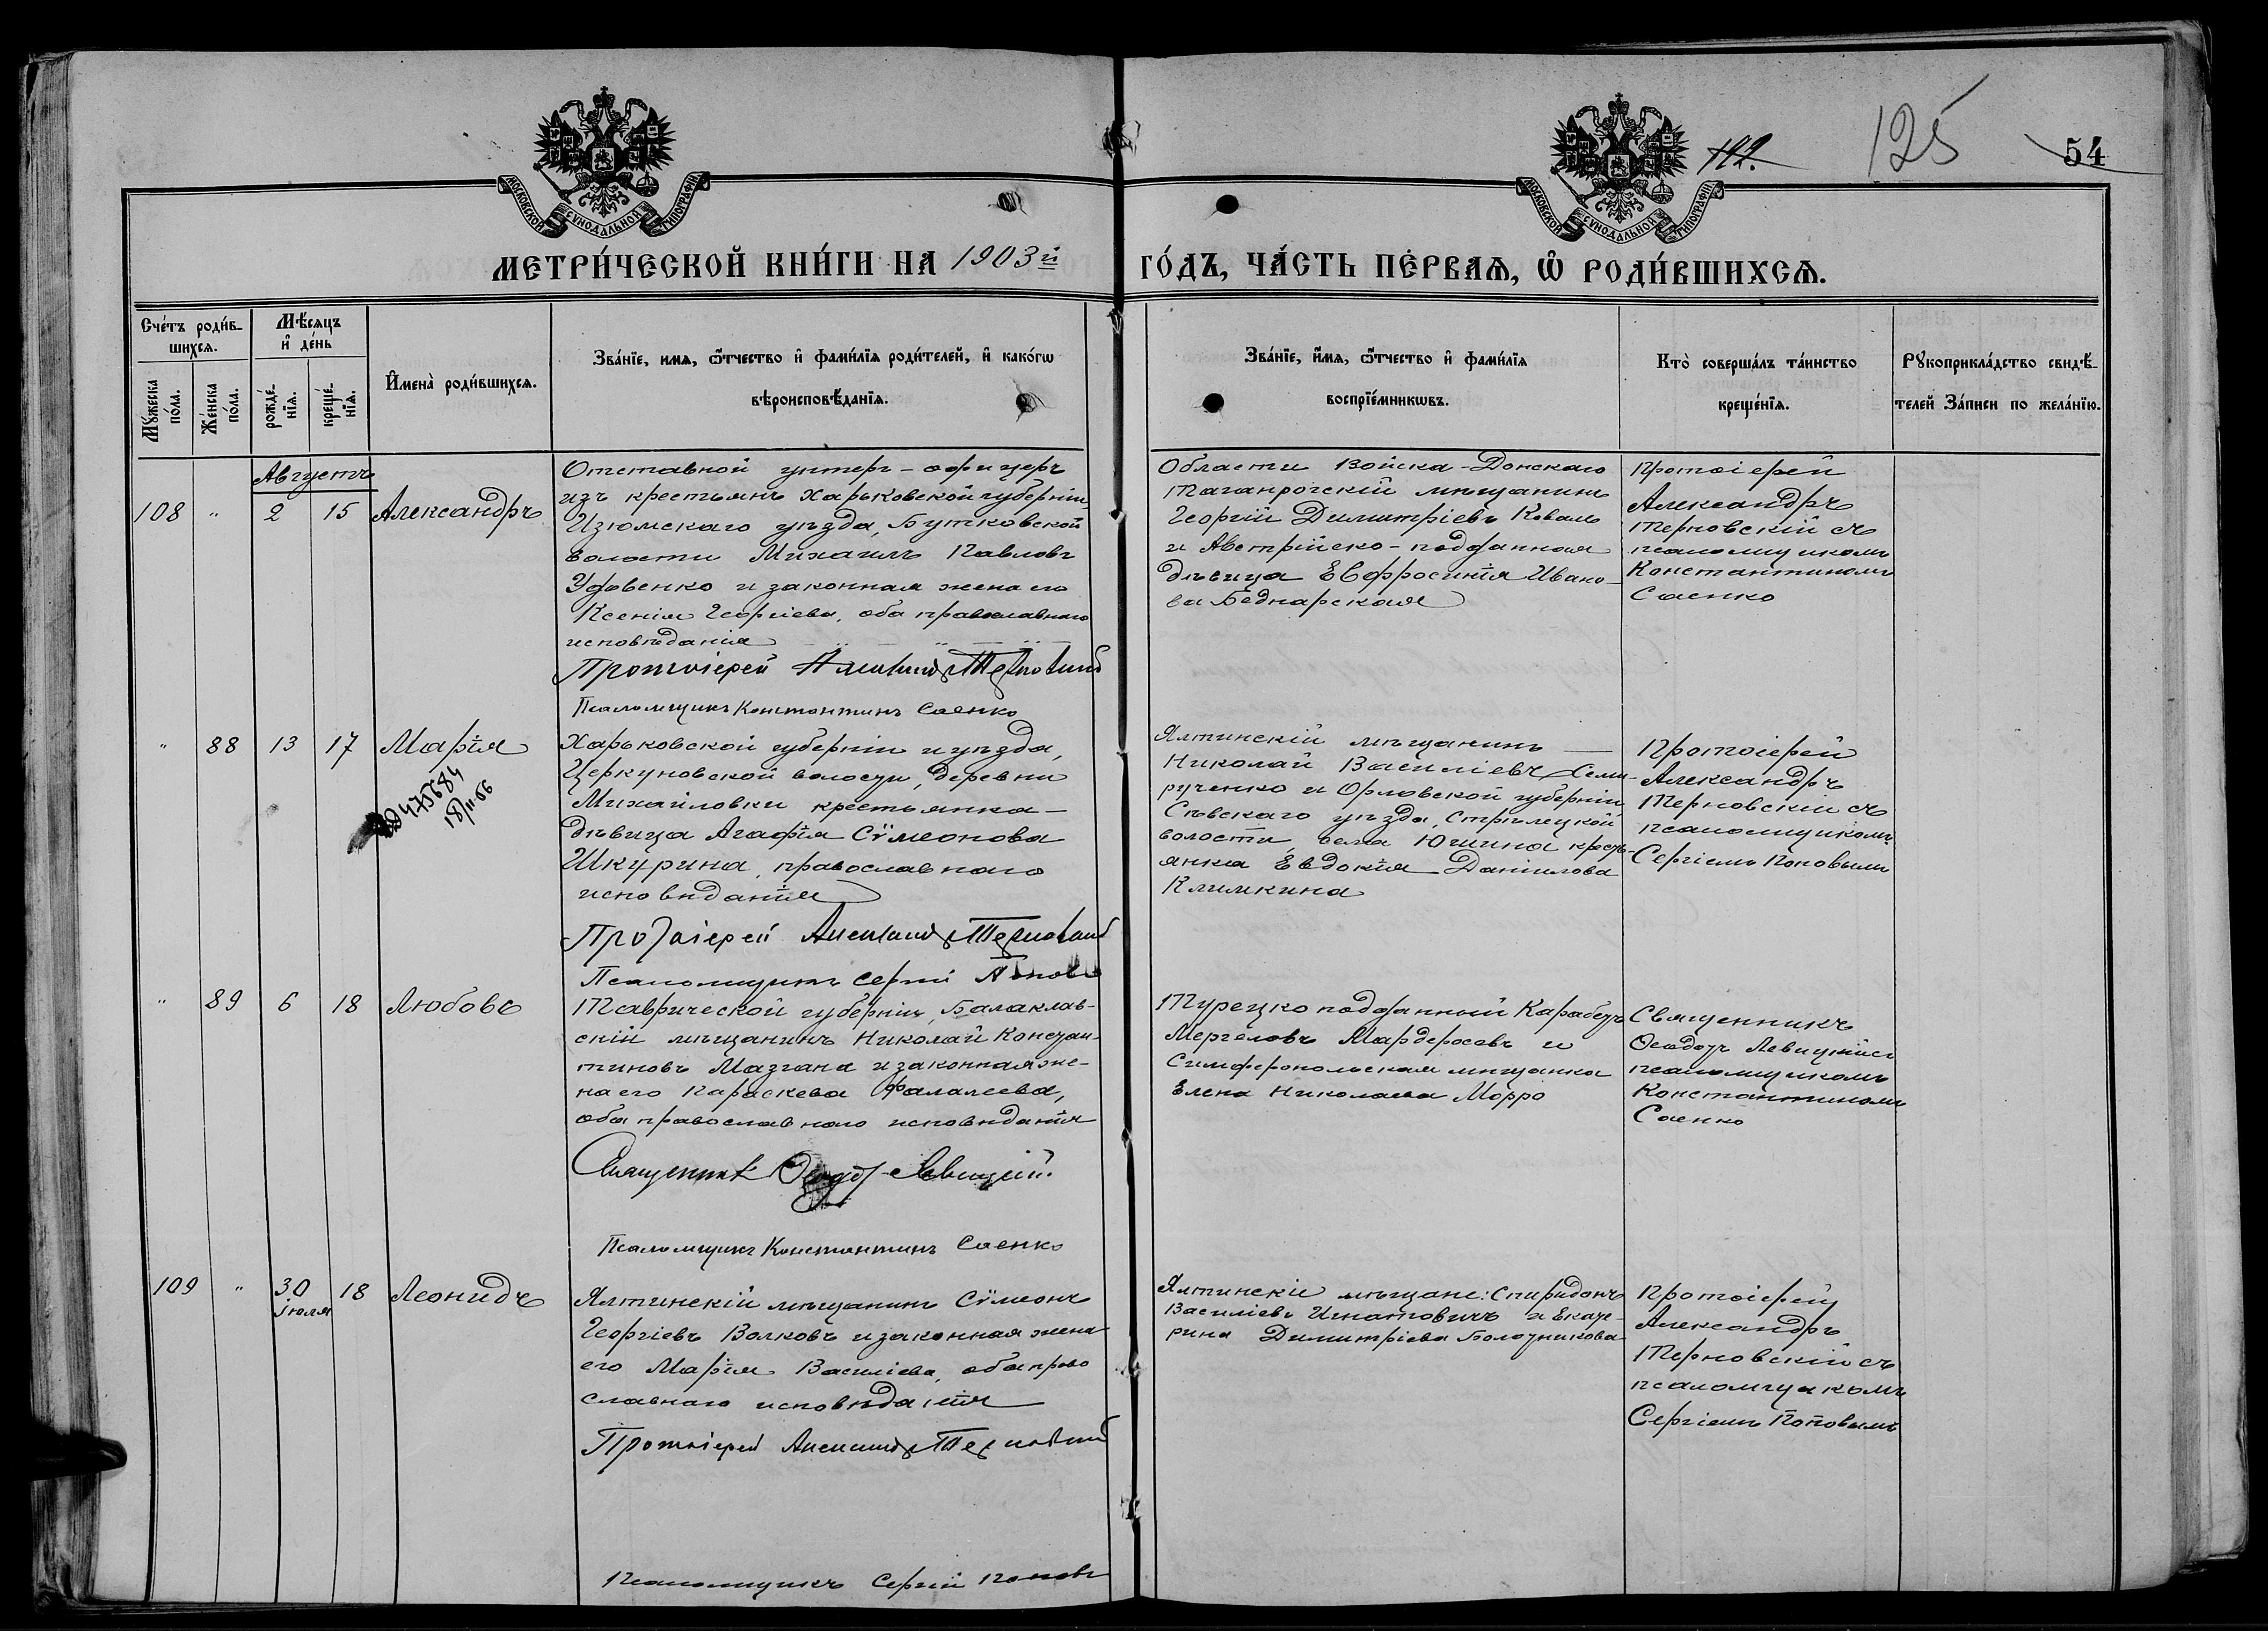 122.
125
54
МОСКОВСКОЙ СѴНОДАЛЬНОЙ ТИПОГРАФІИ
МОСКОВСКОЙ СѴНОДАЛЬНОЙ ТИПОГРАФІИ
МЕТРИ́ЧЕСКОЙ КНИ́ГИ НА 1903й ГО́ДЪ, ЧА́СТЬ ПЕ́РВАѦ, Ѡ҆ РОДИ́ВШИХСѦ.
Сче́тъ роди́в-
шихсѧ.
Мѣ́сѧцъ
и҆ де́нь
Мꙋ́жеска
по́ла.
Же́нска
по́ла.
рожде́-
нїѧ.
креще́-
нїѧ.
И҆мена̀ роди́вшихсѧ.
Зва́нїе, имѧ, ѻ҆́тчество и҆ фами́лїѧ роди́телей, и҆ како́гѡ
вѣроисповѣ́данїѧ.
Зва́нїе, и҆́мѧ, ѻ҆́тчество и҆ фами́лїѧ
воспрїе́мникѡвъ.
Кто̀ соверша́лъ та́инство
креще́нїѧ.
Рꙋкоприкла́дство свидѣ́-
телей За́писи по жела́нїю.
Августъ
108 " 2 15 Александръ
Отставной унтеръ-офицеръ
изъ крестьянъ Харьковской губерніи,
Изюмскаго уѣзда, Бутковской
волости Михаилъ Павловъ
Удовенко и законная жена его
Ксенія Георгіева, оба православнаго
исповѣданія
Протоіерей Александръ Терновскій
Псаломщикъ Константинъ Саенко
Области Войска-Донскаго
Таганрогскій мѣщанинъ
Георгій Димитріевъ Коваль
и Австрійско-подданная
дѣвица Евфросинія Ивано-
ва Беднарская
Протоіерей
Александръ
Терновскій съ
псаломщикомъ
Константиномъ
Саенко
" 88 13 17 Марія
475684
18/II-66
Харьковской губерніи и уѣзда,
Церкуновской волости, деревни
Михайловки крестьянка-
дѣвица Агафія Сѵмеонова
Шкурина, православнаго
исповѣданія
Протоіерей Александръ Терновскій
Псаломщикъ Сергій Поповъ
Ялтинскій мѣщанинъ
Николай Василіевъ Семи-
рученко и Орловской губерніи
Сѣвскаго уѣзда, Стрѣлецкой
волости, села Юшина кресть-
янка Евдокія Даніилова
Климкина
Протоіерей
Александръ
Терновскій съ
псаломщикомъ
Сергіемъ Поповымъ
" 89 6 18 Любовь
Таврической губерніи, Балаклав-
скій мѣщанинъ Николай Констан-
тиновъ Мазгана и законная же-
на его Параскева Фалалеева,
оба православнаго исповѣданія
Священникъ Ѳеодотъ Левицкій
Псаломщикъ Константинъ Саенко
Турецкоподданный Карабетъ
Мергеловъ Мардеросовъ и
Симферопольская мѣщанка
Елена Николаева Морро
Священникъ
Ѳеодотъ Левицкій съ
псаломщикомъ
Константиномъ
Саенко
109 " 30 18 Леонидъ
іюля
Ялтинскій мѣщанинъ Сѵмеонъ
Георгіевъ Волковъ и законная жена
его Марія Василіева, оба право
славнаго исповѣданія
Протоіерей Александръ Терновскій
Псаломщикъ Сергій Поповъ
Ялтинскіе мѣщане: Спиридонъ
Василіевъ Игнатовичъ и Екате-
рина Димитріева Болотникова
Протоіерей
Александръ
Терновскій съ
псаломщикомъ
Сергіемъ Поповымъ